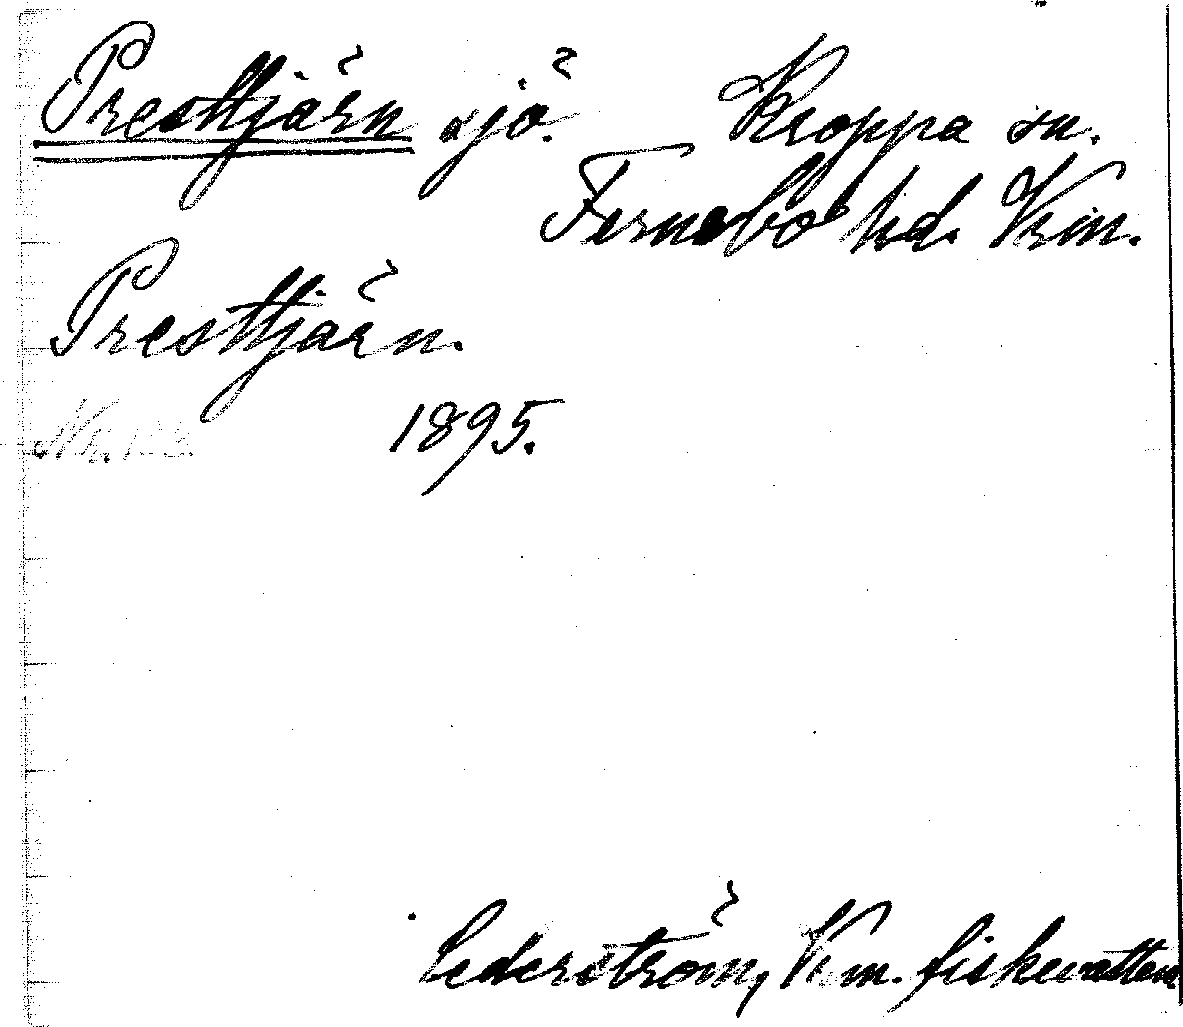 Presttjärn sjö. Kroppa sn.
Fernebo hd. Vrm.
Presttjärn.
1895.
Cederström, Vrm. fiskevatten